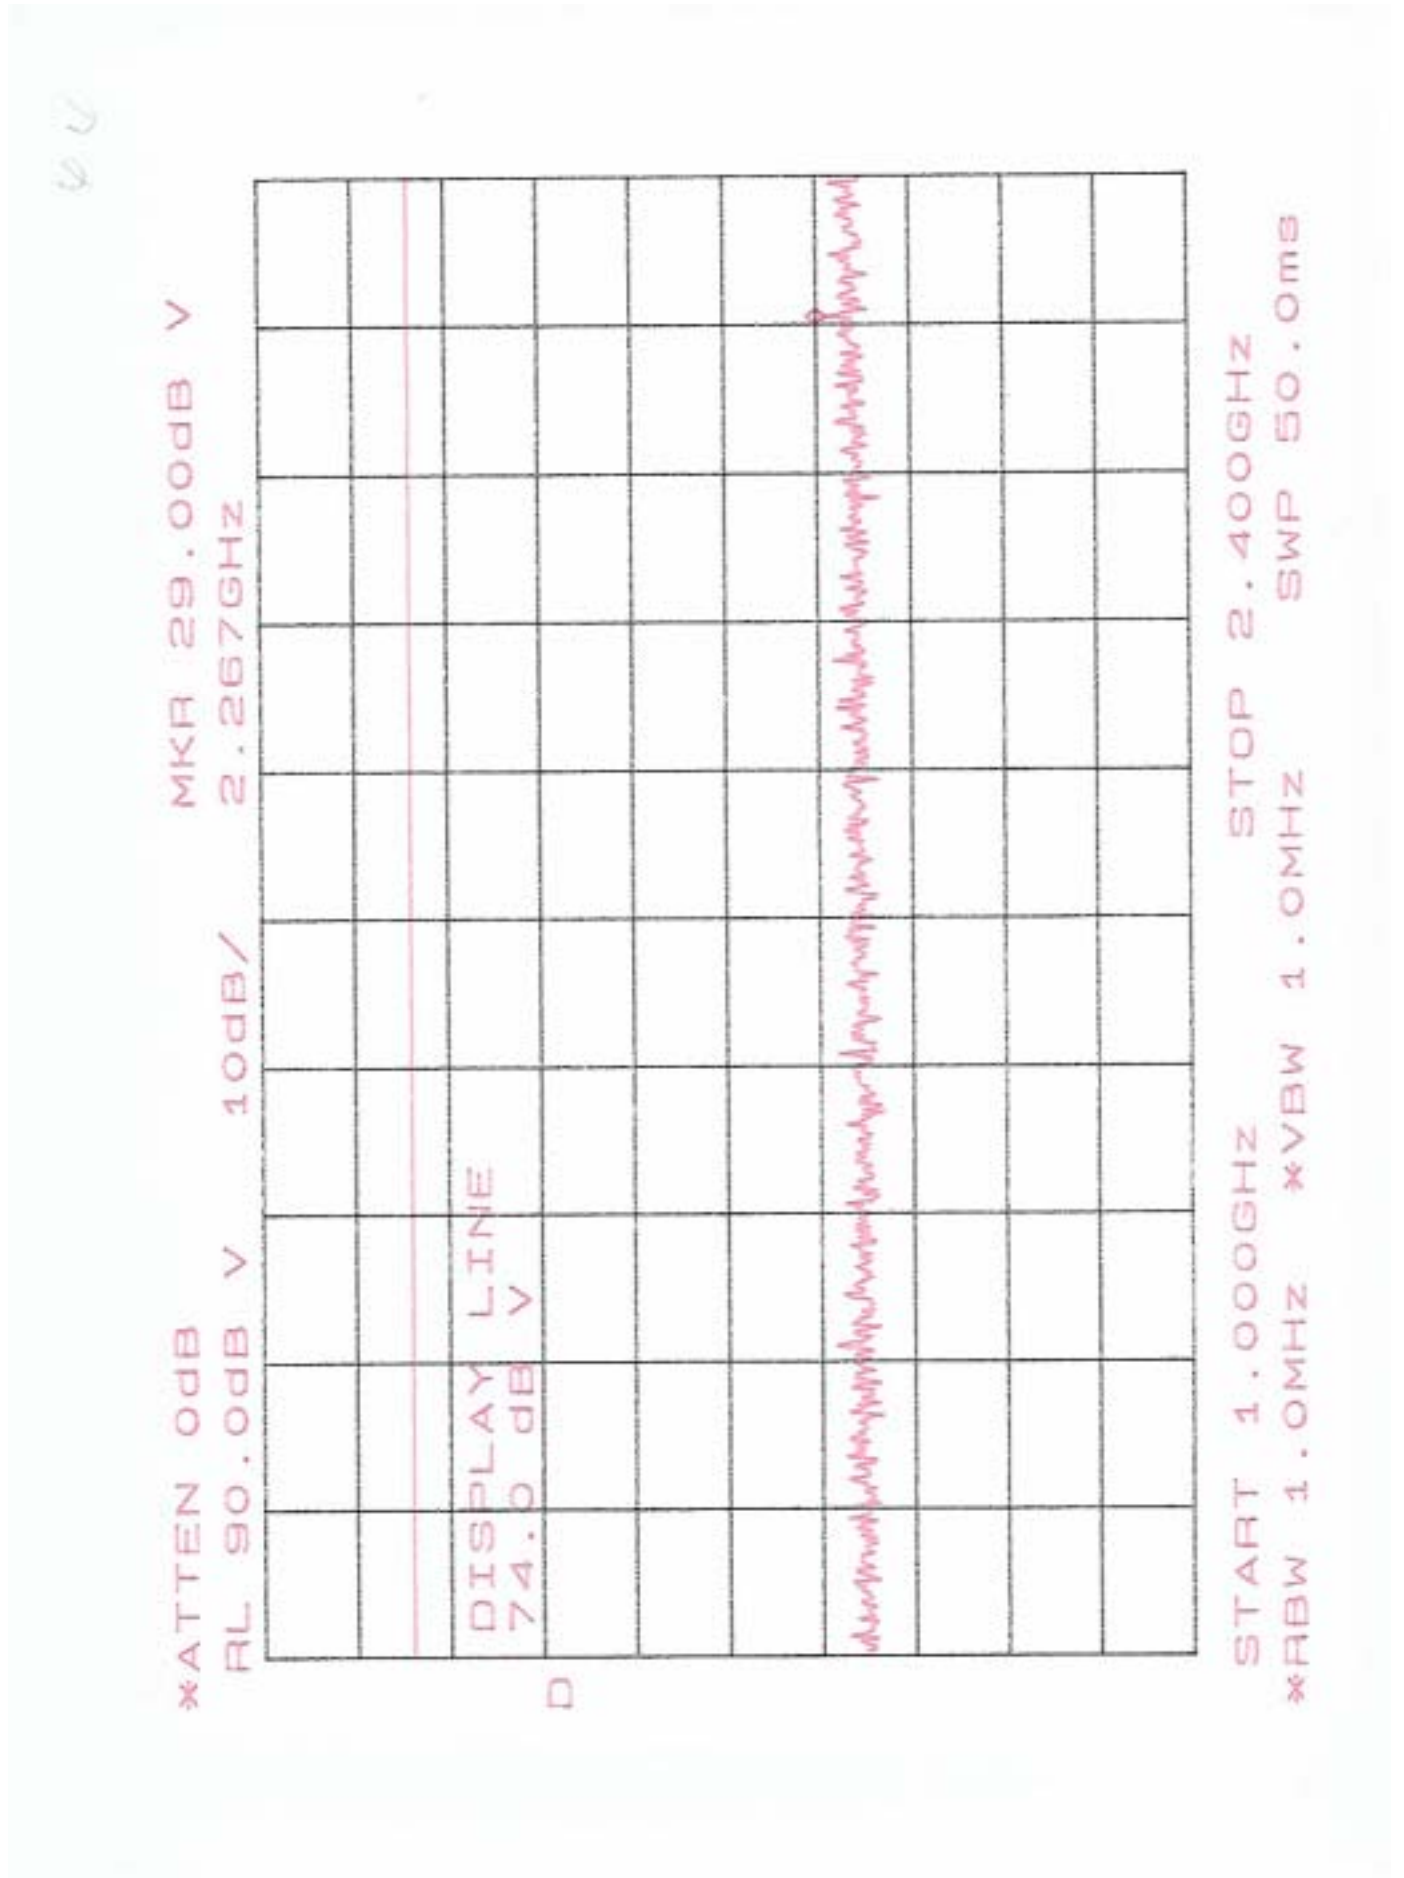 *ATTEN 0dB MKR 29.00dB V
RL 90.0dB V 10dB/ 2.267GHz
DISPLAY LINE
74.0 dB V
D
START 1.000GHz STOP 2.400GHz
*RBW 1.0MHz *VBW 1.0MHz SWP 50.0ms